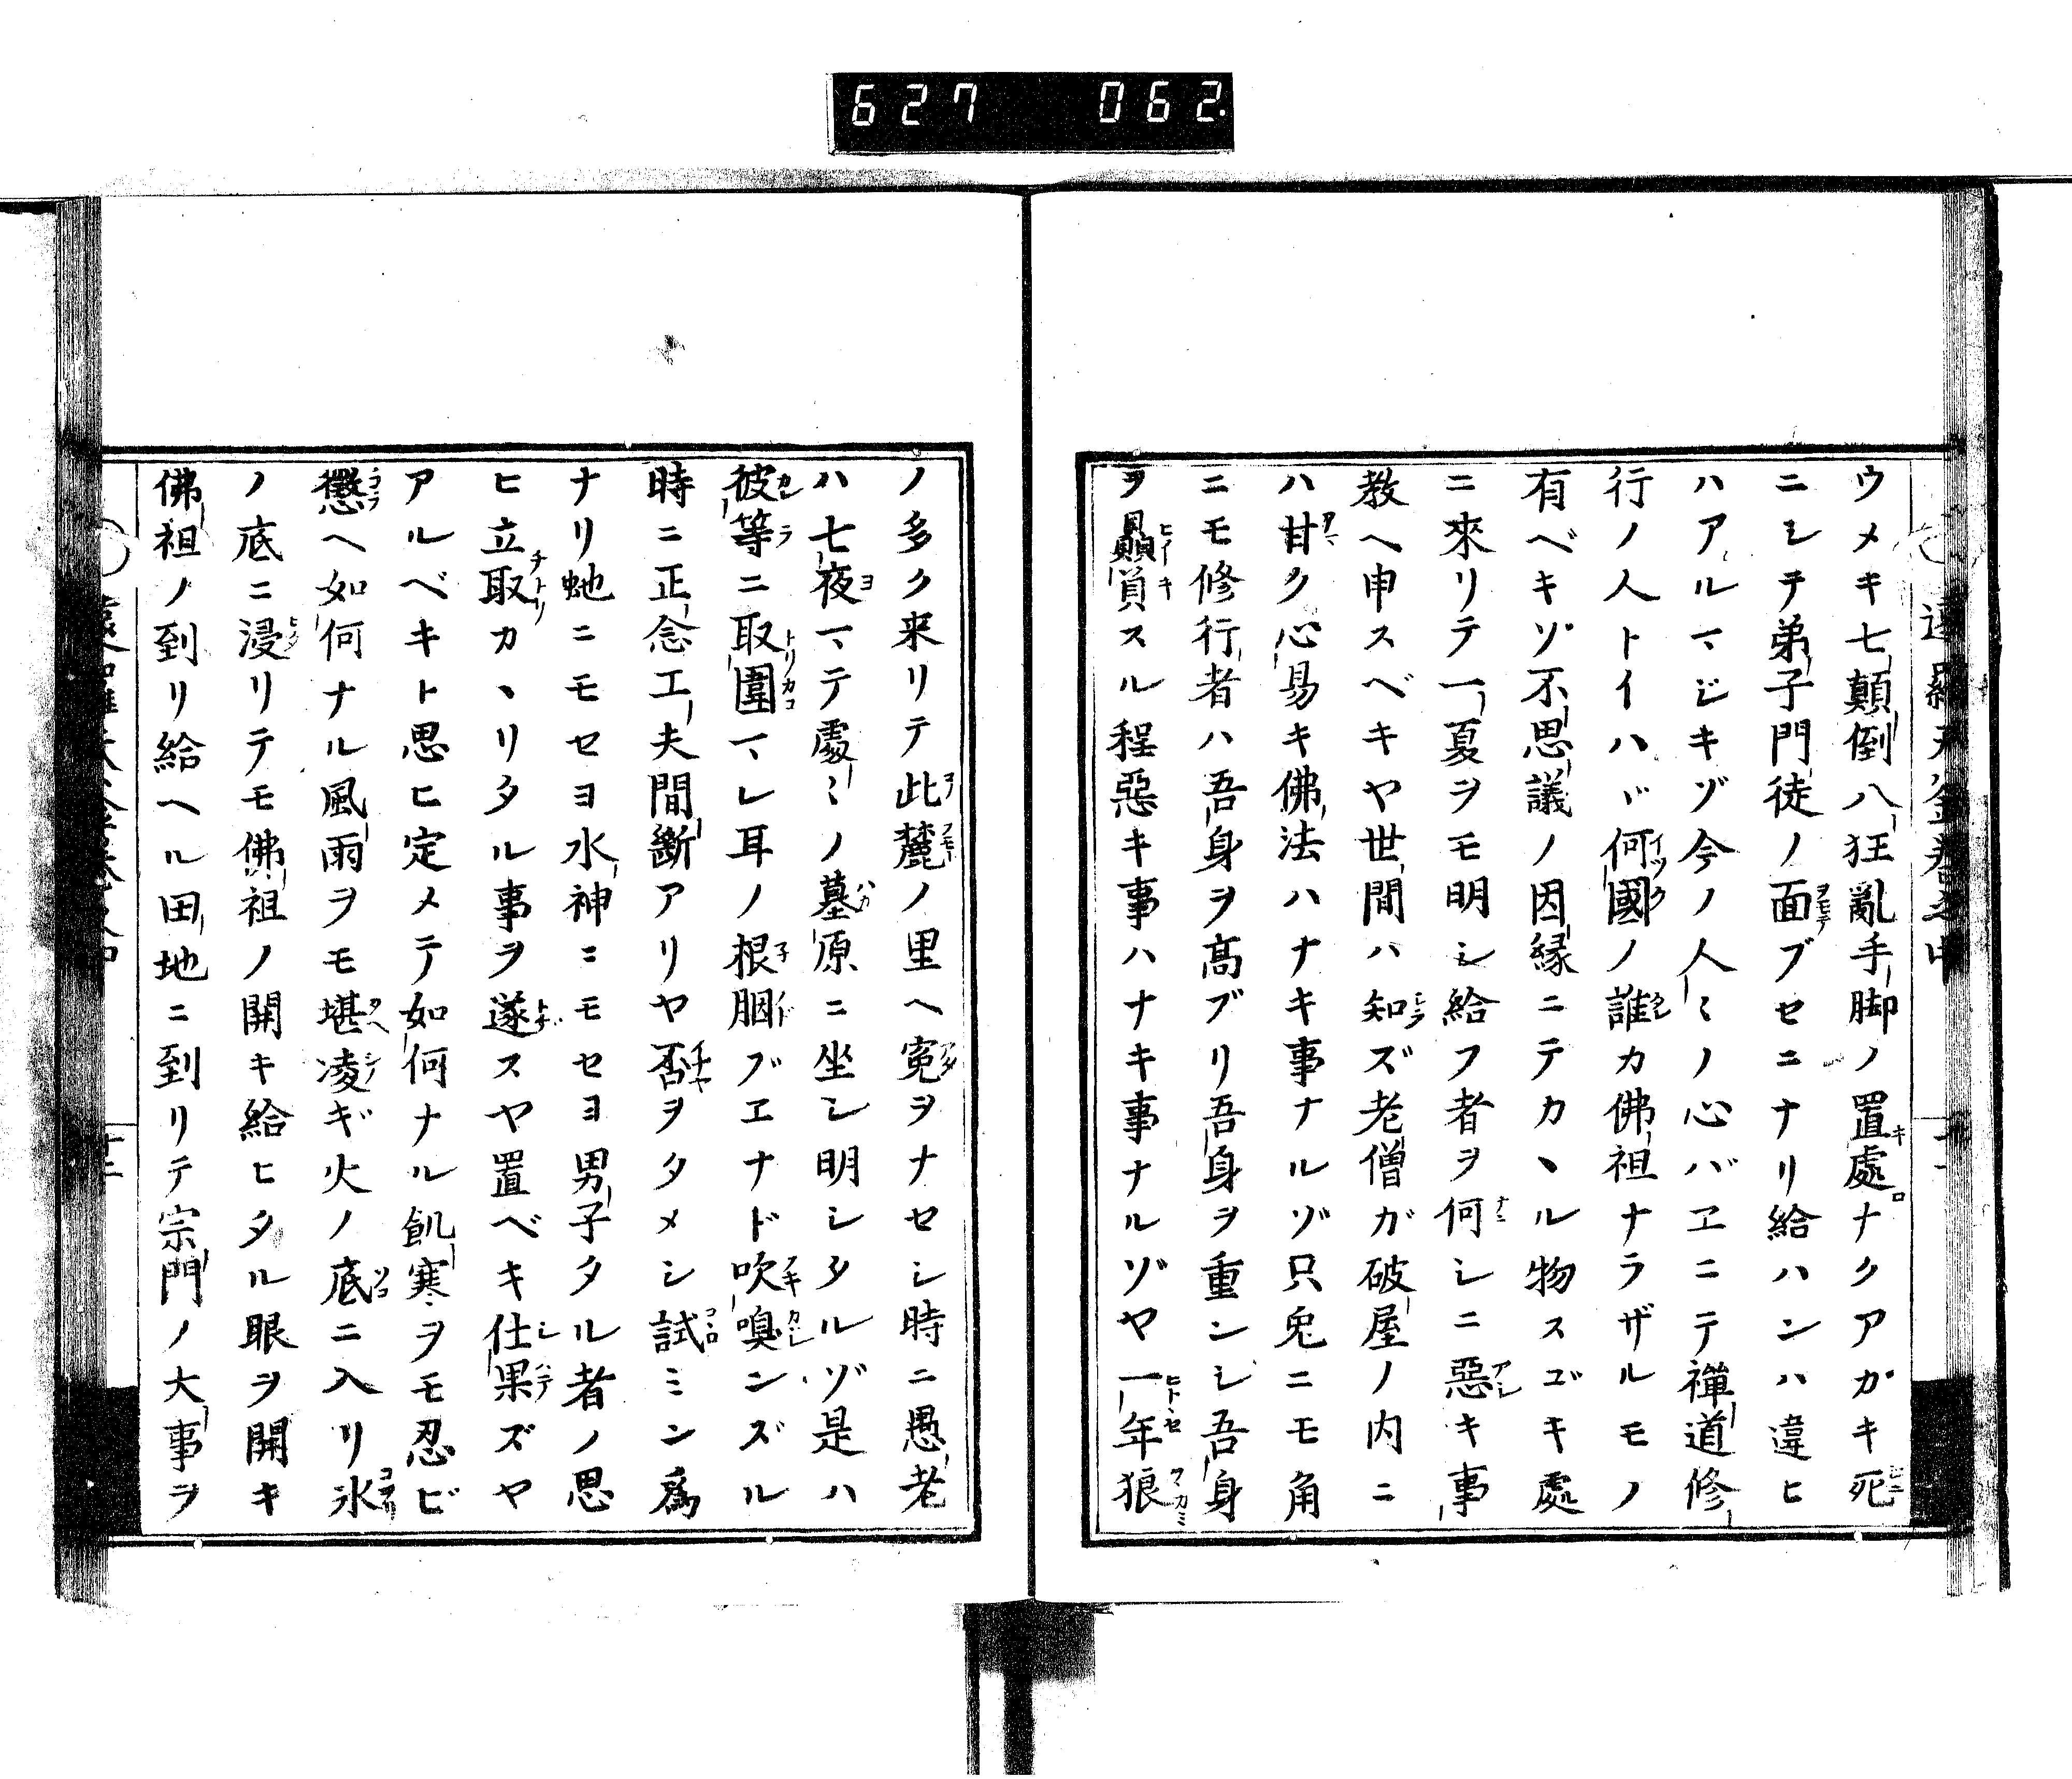 627 062.
ウメキ七顛倒八狂亂手脚ノ置處ナクアガキ死
ニシテ弟子門徒ノ面ブセニナリ給ハンハ違ヒ
ハアルマジキゾ今ノ人〻ノ心バエニテ禪道修
行ノ人トイハヾ何國ノ誰カ佛祖ナラザルモノ
有ベキゾ不思議ノ因縁ニテカヽル物スゴキ處
ニ來リテ一夏ヲモ明シ給フ者ヲ何シニ惡キ事
教ヘ申スベキヤ世間ハ知ズ老僧ガ破屋ノ内ニ
ハ甘ク心易キ佛法ハナキ事ナルゾ只兎ニモ角
ニモ修行者ハ吾身ヲ高ブリ吾身ヲ重ンシ吾身
ヲ贔負スル程惡キ事ハナキ事ナルゾヤ一年狼
ノ多ク来リテ此麓ノ里ヘ寃ヲナセシ時ニ愚老
ハ七夜マデ處〻ノ墓原ニ坐シ明シタルゾ是ハ
彼等ニ取圍マレ耳ノ根胭ブエナド吹嗅ンズル
時ニ正念工夫間斷アリヤ否ヲタメシ試ミン爲
ナリ虵ニモセヨ水神ニモセヨ男子タル者ノ思
ヒ立取カヽリタル事ヲ遂スヤ置ベキ仕果ズヤ
アルベキト思ヒ定メテ如何ナル飢寒ヲモ忍ビ
懲ヘ如何ナル風雨ヲモ堪凌ギ火ノ底ニ入リ氷
ノ底ニ浸リテモ佛祖ノ開キ給ヒタル眼ヲ開キ
佛祖ノ到リ給ヘル田地ニ到リテ宗門ノ大事ヲ
十二